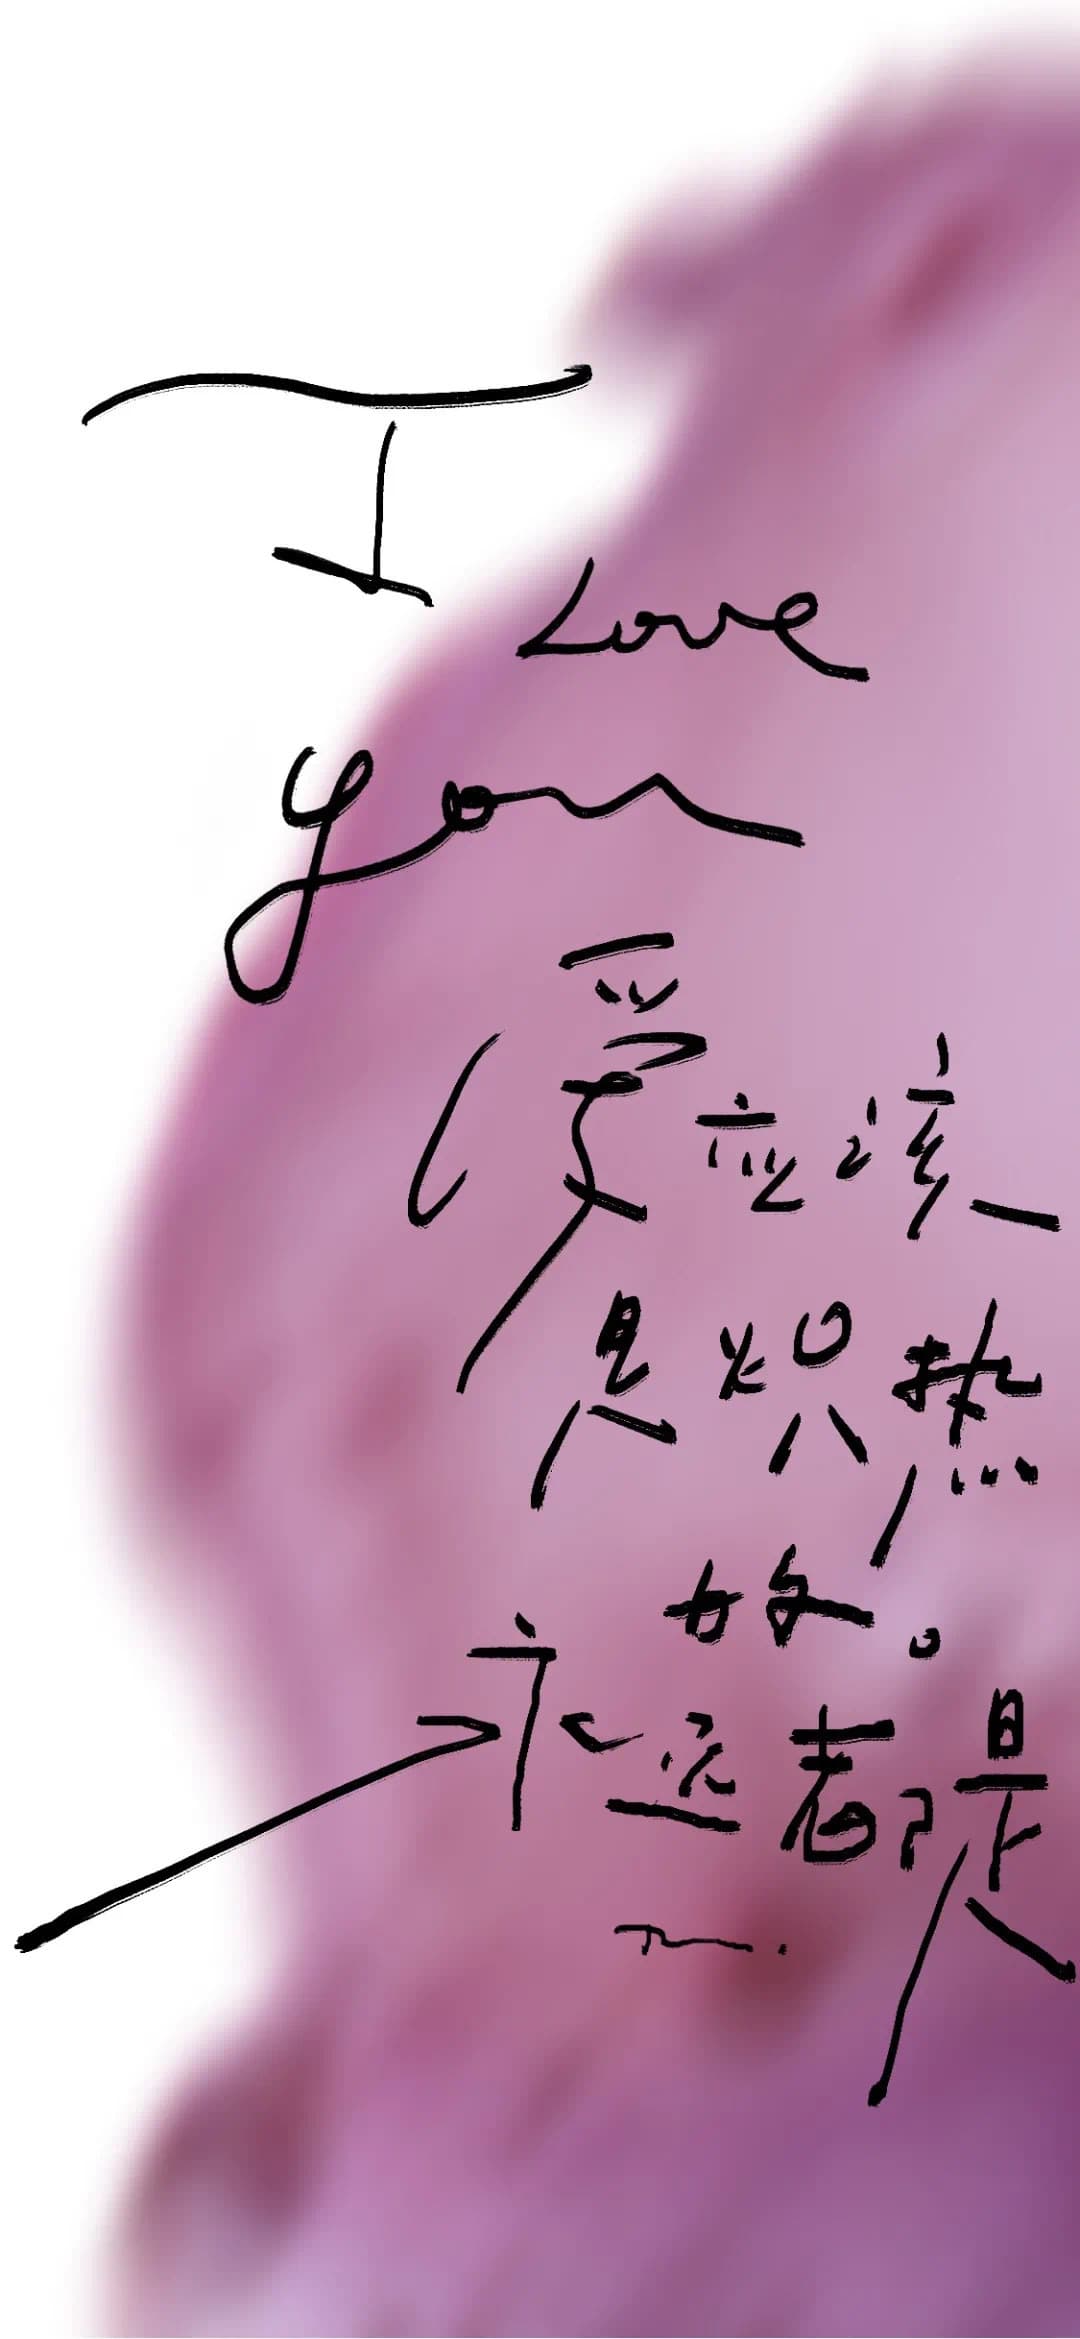 I
Love
you
爱应该
是炽热
的。
永远都是